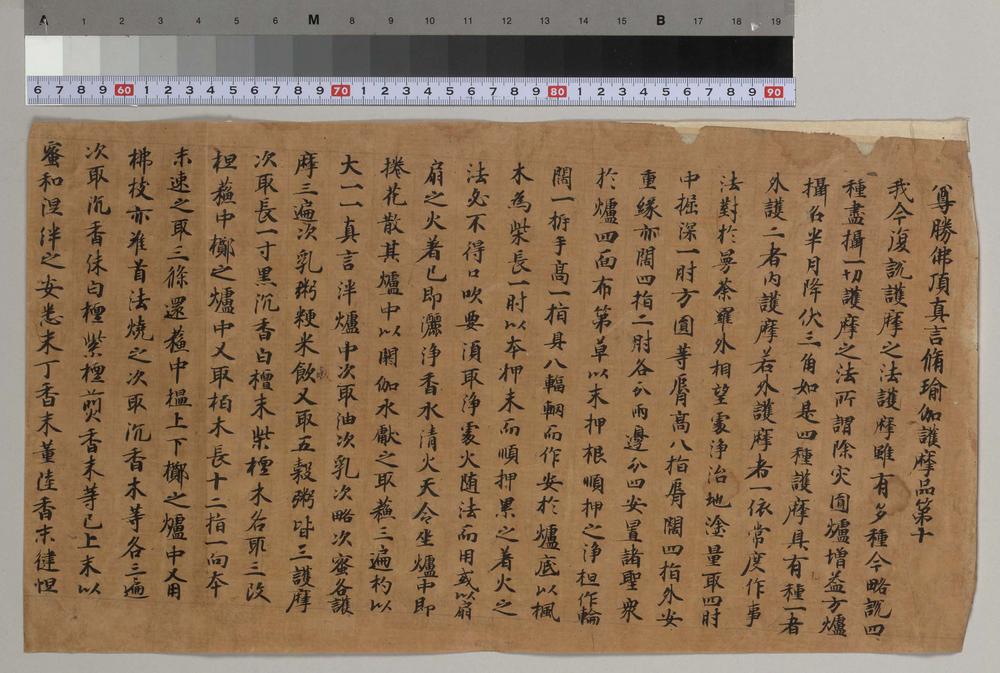 A 1 2 3 4 5 6 M 8 9 10 11 12 13 14 15 B 17 18 19
6 7 8 9 60 1 2 3 4 5 6 7 8 9 70 1 2 3 4 5 6 7 8 9 80 1 2 3 4 5 6 7 8 9 90
尊勝佛頂真言脩瑜伽護摩品第十
我今復説護摩之法護摩雖有多種今略説四
種盡攝一切護摩之法所謂除灾圓爐増益方爐
攝召半月降伏三角如是四種護摩具有種一者
外護二者内護摩若外護摩者一依常度作事
法對於曼荼羅外相望處浄治地塗量取四肘
中掘深一肘方圓等脣高八指脣闊四指外安
重縁亦闊四指二肘各分兩邊分四安置諸聖衆
於爐四面布第草以末押根順押之浄柦作輪
闊一搩手高一指具八輻輞而作安於爐底以楓
木為柴長一肘以夲押末而順押累之着火之
法必不得口吹要湏取浄處火随法而用或以扇
扇之火着已即灑浄香水清火天令坐爐中即
捲花散其爐中以閼伽水獻之取蘓三遍杓以
大一一真言泮爐中次取油次乳次略次蜜各護
摩三遍次乳粥粳米飲又取五穀粥皆三護摩
次取長一寸黒沉香白檀末紫檀木各取三没
柦蘓中擲之爐中又取栢木長十二指一向夲
末速之取三條還蘓中揾上下擲之爐中又用
柫枝亦准首法燒之次取沉香木等各三遍
次取沉香侏白檀紫檀煎香末等已上末以
蜜和涅絆之安悉末丁香末薫陸香末健怛